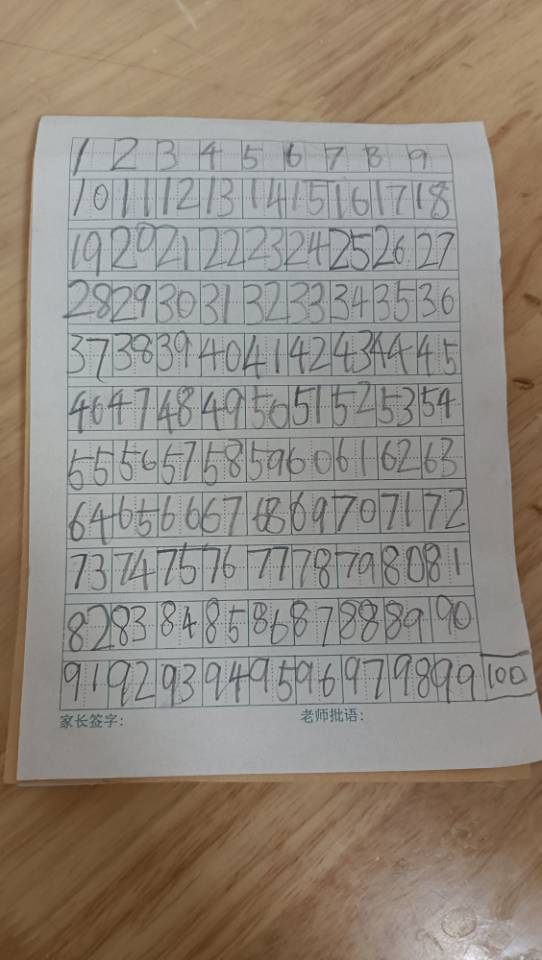 1 2 3 4 5 6 7 8 9
10 11 12 13 14 15 16 17 18
19 20 21 22 23 24 25 26 27
28 29 30 31 32 33 34 35 36
37 38 39 40 41 42 43 44 45
46 47 48 49 50 51 52 53 54
55 56 57 58 59 60 61 62 63
64 65 66 67 68 69 70 71 72
73 74 75 76 77 78 79 80 81
82 83 84 85 86 87 88 89 90
91 92 93 94 95 96 97 98 99 100
家长签字： 老师批语：